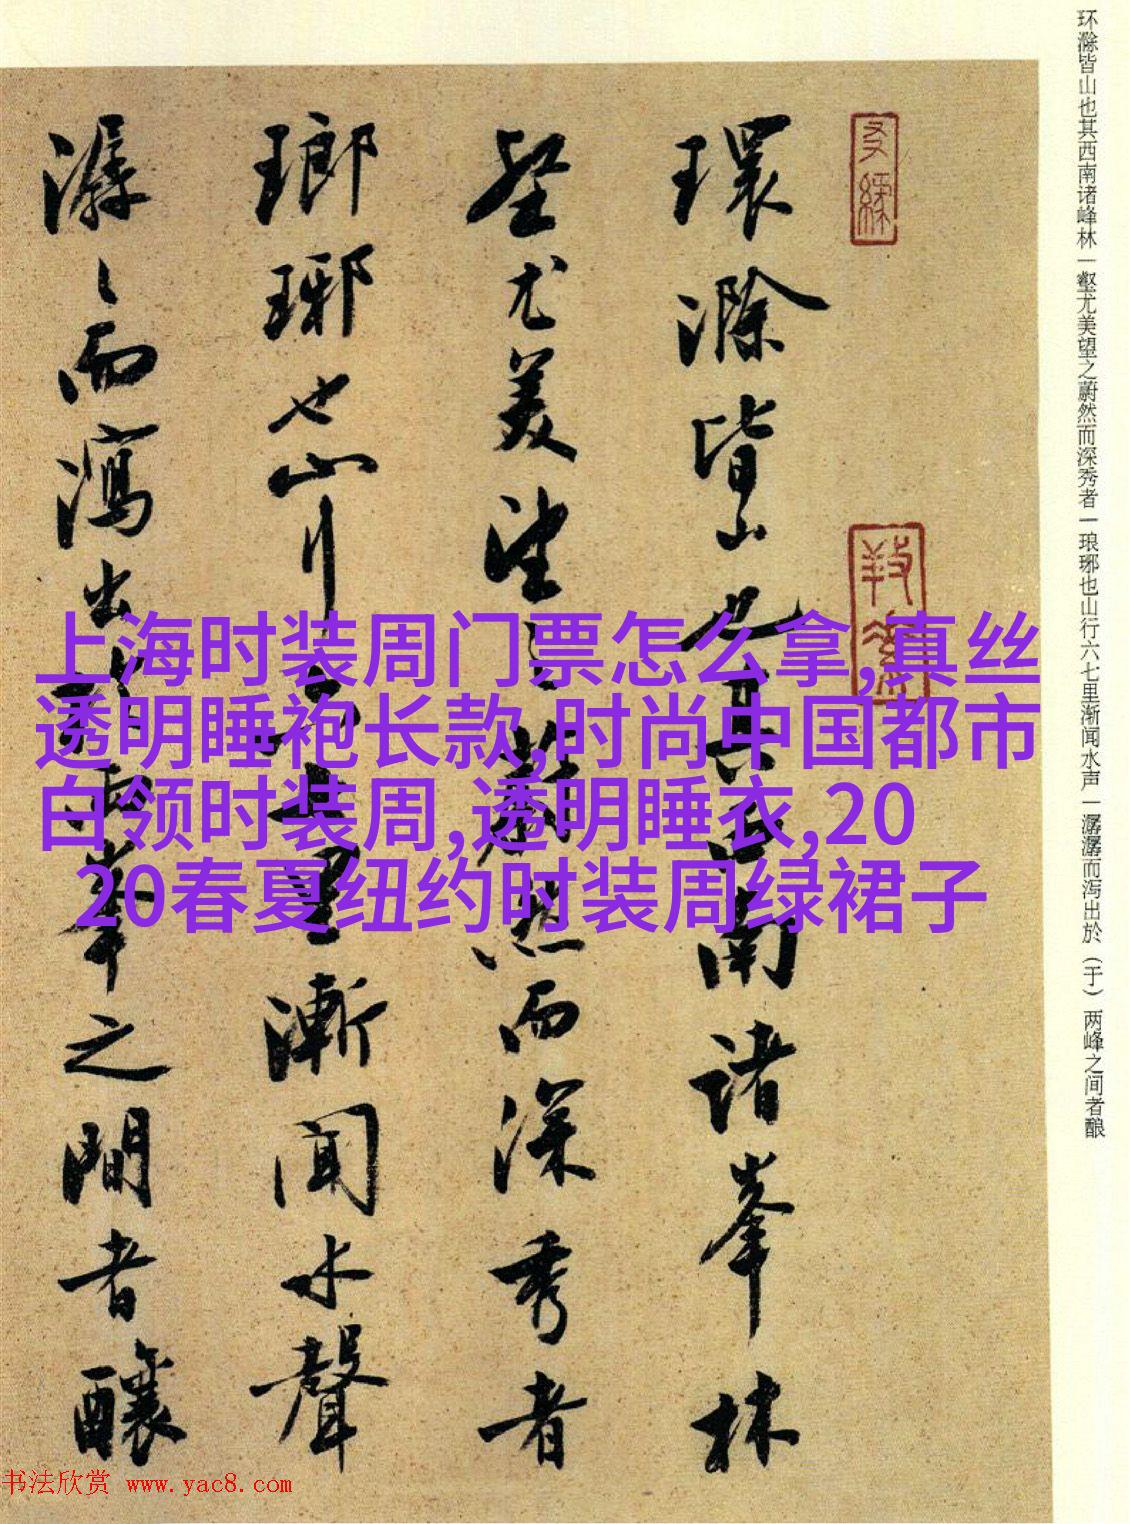 环滁皆山也其西南诸峰林一壑尤美望之蔚然而深秀者一琅琊也山行六七里渐闻水声一潺潺而泻出於（于）两峰之间者酿
環滁皆山也其西南諸峯林
壑尤美望之蔚然而深秀者
瑯琊也山行六七里漸聞水聲
潺〻而瀉出於兩峯之間者釀
上海时装周门票怎么拿,真丝
透明睡袍长款,时尚中国都市
白领时装周,透明睡衣,20
20春夏纽约时装周绿裙子
书法欣赏 www.yac8.com